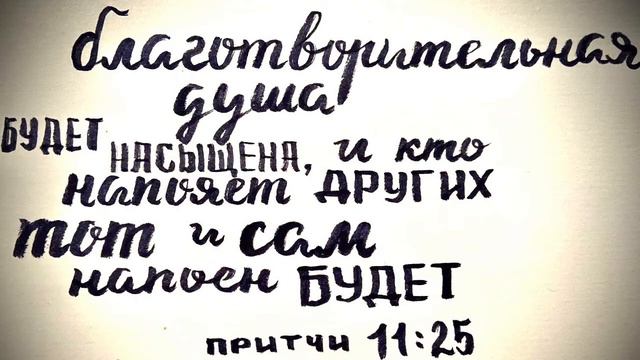 благотворительная
душа
БУДЕТ НАСЫЩЕНА, и кто
напояет ДРУГИХ
тот и сам
напоен БУДЕТ
ПРИТЧИ 11:25